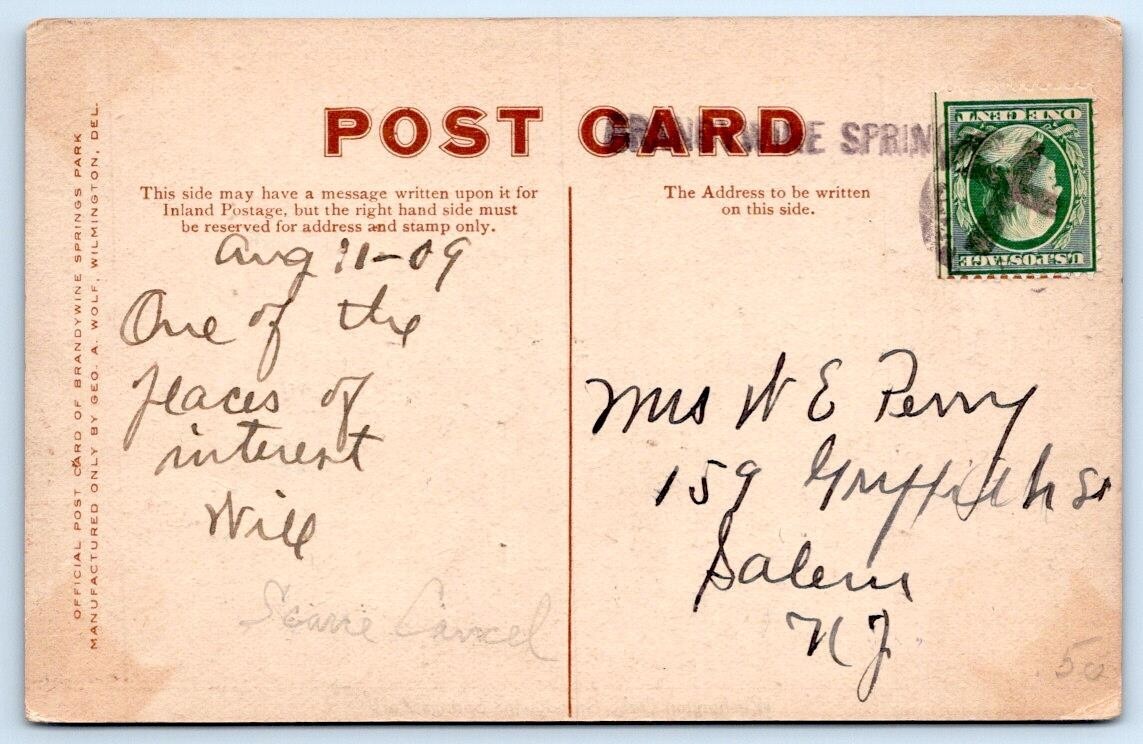 POST CARD
BRANDYWINE SPRING
ONE CENT
U.S. POSTAGE
This side may have a message written upon it for
Inland Postage, but the right hand side must
be reserved for address and stamp only.
The Address to be written
on this side.
OFFICIAL POST CARD OF BRANDYWINE SPRINGS PARK
MANUFACTURED ONLY BY GEO. A. WOLF, WILMINGTON, DEL.
Aug 11-09
One of the
places of
interest
Will
Mrs W E Perry
159 Griffith St
Salem
N J
Scarce Cancel
.50